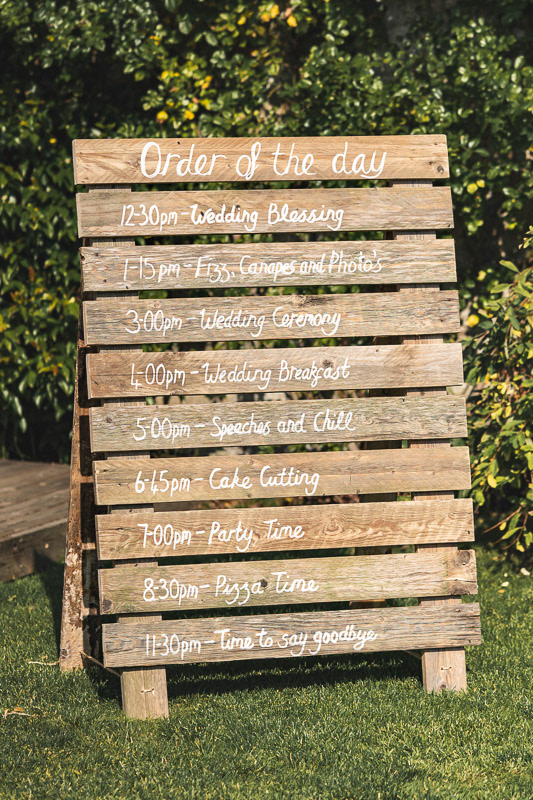 Order of the day
12-30pm - Wedding Blessing
1-15pm - Fizz, Canapes and Photo's
3-00pm - Wedding Ceremony
4-00pm - Wedding Breakfast
5-00pm - Speeches and Chill
6-45pm - Cake Cutting
7-00pm - Party Time
8-30pm - Pizza Time
11-30pm - Time to say goodbye